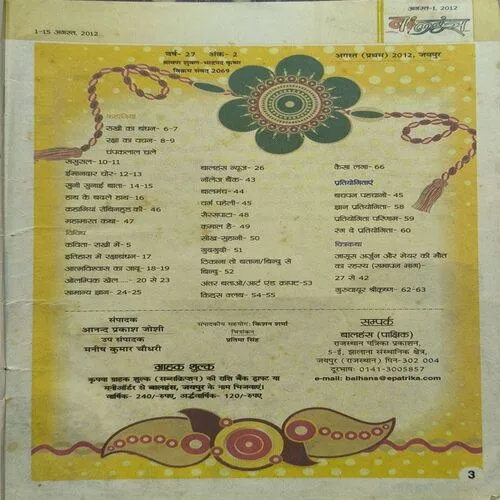 अगस्त-I, 2012
1-15 अगस्त, 2012
वर्ष- 27 अंक- 2
श्रावण शुक्ल-भाद्रपद कृष्ण
विक्रम संवत् 2069
अगस्त (प्रथम) 2012, जयपुर
कहानियां
राखी का बंधन- 6-7
रक्षा का वचन- 8-9
चंपकलाल चले
ससुराल- 10-11
ईमानदार चोर- 12-13
सुनी सुनाई बात- 14-15
हाथ के बदले हाथ- 16
कहानियां रॉबिनहुड की- 46
महाभारत कथा- 47
विविध
कविता- राखी में- 5
इतिहास में रक्षाबंधन- 17
आत्मविश्वास का जादू- 18-19
ओलम्पिक खेल..... 20 से 23
सामान्य ज्ञान- 24-25
बालहंस न्यूज- 26
नॉलेज बैंक- 43
बालमंच- 44
वर्ग पहेली- 45
सैरसपाटा- 48
कमाल है- 49
सीख-सुहानी- 50
गुदगुदी- 51
ठिकाना तो बताना/बिन्दु से
बिन्दु- 52
अंतर बताओ/आर्ट एंड क्राफ्ट- 53
किड्स क्लब- 54-55
कैसा लगा- 66
प्रतियोगिताएं
बचपन पहचानो- 45
ज्ञान प्रतियोगिता- 58
प्रतियोगिता परिणाम- 59
रंग दे प्रतियोगिता- 60
चित्रकथा
जासूस अर्जुन और मेयर की मौत
का रहस्य (समापन भाग)-
27 से 42
गुरुवायूर श्रीकृष्ण- 62-63
संपादक
आनन्द प्रकाश जोशी
उप संपादक
मनीष कुमार चौधरी
संपादकीय सहयोग: किशन शर्मा
चित्रांकन
प्रतिमा सिंह
सम्पर्क
बालहंस (पाक्षिक)
राजस्थान पत्रिका प्रकाशन,
5-ई, झालाना संस्थानिक क्षेत्र,
जयपुर (राजस्थान) पिन-302 004
दूरभाष: 0141-3005857
e-mail: balhans@epatrika.com
ग्राहक शुल्क
कृपया ग्राहक शुल्क (सब्सक्रिप्शन) की राशि बैंक ड्राफ्ट या
मनीऑर्डर से बालहंस, जयपुर के नाम भिजवाएं।
वार्षिक- 240/-रुपए, अर्द्धवार्षिक- 120/-रुपए
3